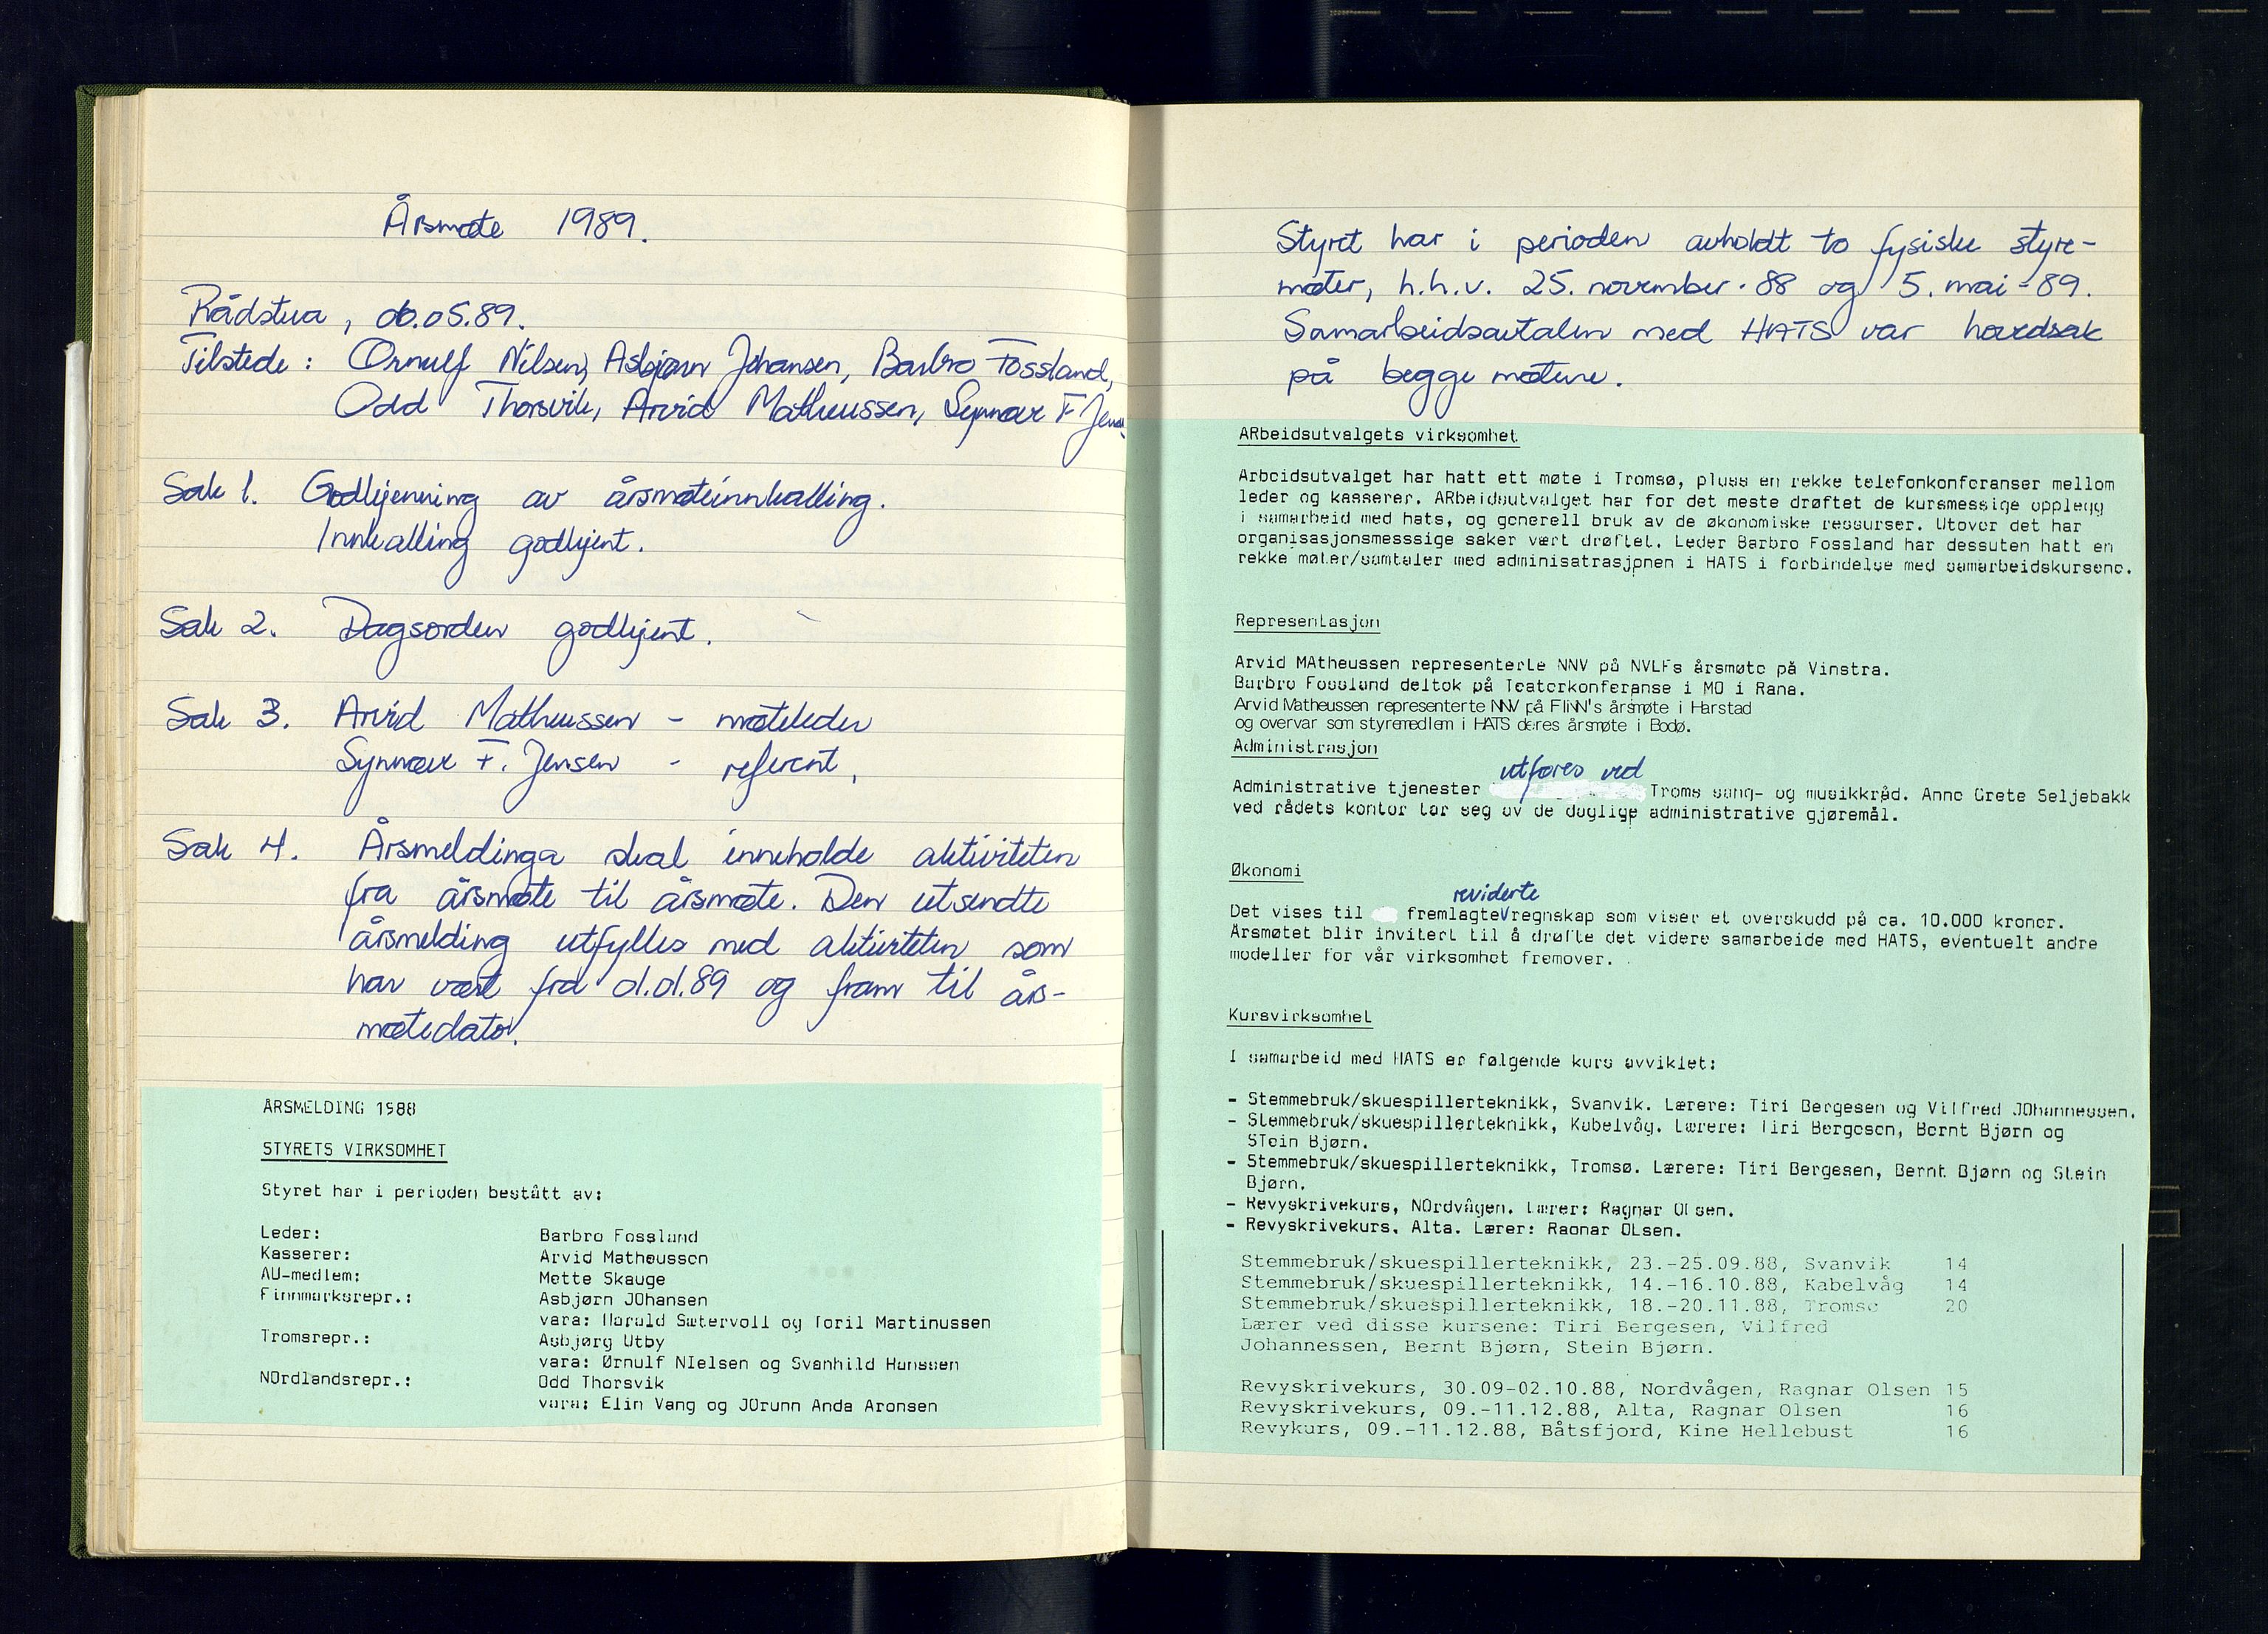 Årsmøte 1989.
Rådstua, 06.05.89.
Tilstede: Ørnulf Nilsen, Asbjørn Johansen, Barbro Fossland,
Odd Thorsvik, Arvid Matheussen, Synnøve F Jensen
Sak 1. Godkjenning av årsmøteinnkalling.
Innkalling godkjent.
Sak 2. Dagsorden godkjent.
Sak 3. Arvid Matheussen - møteleder
Synnøve F. Jensen - referent,
Sak 4. Årsmeldinga skal inneholde aktiviteten
fra årsmøte til årsmøte. Den utsendte
årsmelding utfylles med aktiviteten som
har vært fra d.d.89 og fram til års-
møtedato.
ÅRSMELDING 1988
STYRETS VIRKSOMHET
Styret har i perioden bestått av:
Leder: Barbro Fossland
Kasserer: Arvid Matheussen
AU-medlem: Mette Skauge
Finnmarksrepr.: Asbjørn JOhansen
vara: Harald Sætervoll og Toril Martinussen
Tromsrepr.: Asbjørg Utby
vara: Ørnulf NIelsen og Svanhild Hanssen
NOrdlandsrepr.: Odd Thorsvik
vara: Elin Vang og JOrunn Anda Aronsen
Styret har i perioden avholdt to fysiske styre-
møter, h.h.v. 25. november-88 og 5. mai-89.
Samarbeidsavtalen med HATS var hovedsak
på begge møtene.
ARbeidsutvalgets virksomhet
Arbeidsutvalget har hatt ett møte i Tromsø, pluss en rekke telefonkonferanser mellom
leder og kasserer. ARbeidsutvalget har for det meste drøftet de kursmessige opplegg
i samarbeid med hats, og generell bruk av de økonomiske ressurser. Utover det har
organisasjonsmesssige saker vært drøftet. Leder Barbro Fossland har dessuten hatt en
rekke møter/samtaler med adminisatrasjonen i HATS i forbindelse med samarbeidskursene.
Representasjon
Arvid MAtheussen representerte NNV på NVLFs årsmøte på Vinstra.
Barbro Fossland deltok på Teaterkonferanse i MO i Rana.
Arvid Matheussen representerte NNV på FliNN's årsmøte i Harstad
og overvar som styremedlem i HATS deres årsmøte i Bodø.
Administrasjon
utføres ved
Administrative tjenester Troms sang- og musikkråd. Anne Grete Seljebakk
ved rådets kontor tar seg av de daglige administrative gjøremål.
Økonomi
reviderte
Det vises til fremlagte regnskap som viser et overskudd på ca. 10.000 kroner.
Årsmøtet blir invitert til å drøfte det videre samarbeide med HATS, eventuelt andre
modeller for vår virksomhet fremover.
Kursvirksomhet
I samarbeid med HATS er følgende kurs avviklet:
- Stemmebruk/skuespillerteknikk, Svanvik. Lærere: Tiri Bergesen og Vilfred JOhannessen.
- Stemmebruk/skuespillerteknikk, Kabelvåg. Lærere: Tiri Bergesen, Bernt Bjørn og
STein Bjørn.
- Stemmebruk/skuespillerteknikk, Tromsø. Lærere: Tiri Bergesen, Bernt Bjørn og Stein
Bjørn.
- Revyskrivekurs, NOrdvågen. Lærer: Ragnar Olsen.
- Revyskrivekurs, Alta. Lærer: Ragnar OLsen.
Stemmebruk/skuespillerteknikk, 23.-25.09.88, Svanvik 14
Stemmebruk/skuespillerteknikk, 14.-16.10.88, Kabelvåg 14
Stemmebruk/skuespillerteknikk, 18.-20.11.88, Tromsø 20
Lærer ved disse kursene: Tiri Bergesen, Vilfred
Johannessen, Bernt Bjørn, Stein Bjørn.
Revyskrivekurs, 30.09-02.10.88, Nordvågen, Ragnar Olsen 15
Revyskrivekurs, 09.-11.12.88, Alta, Ragnar Olsen 16
Revykurs, 09.-11.12.88, Båtsfjord, Kine Hellebust 16